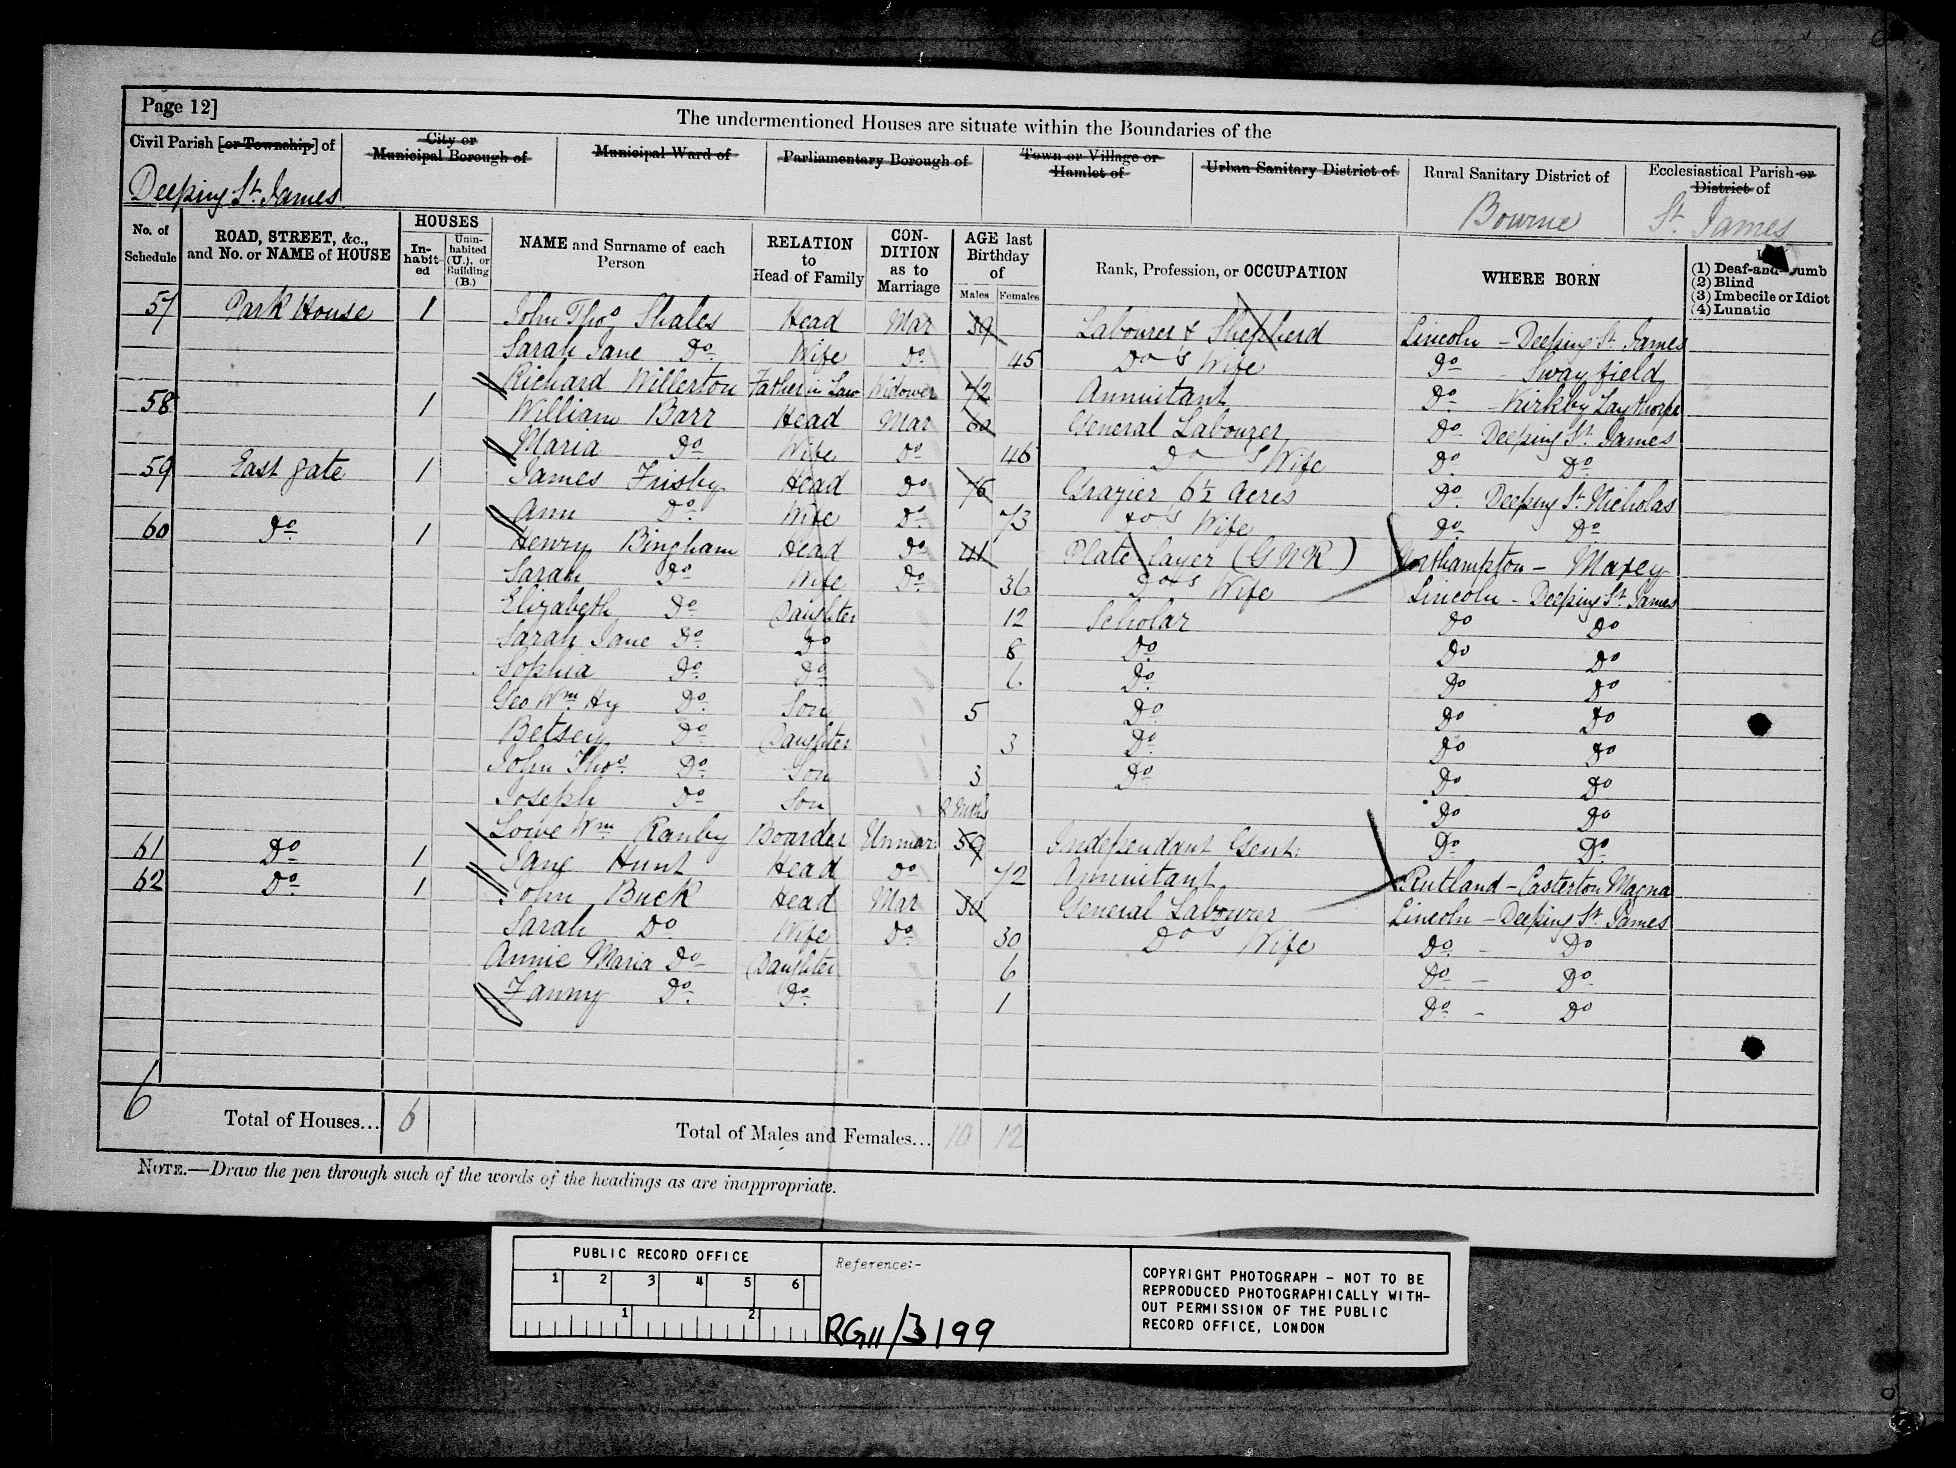 Page 12]
The undermentioned Houses are situate within the Boundaries of the
Civil Parish [or Township] of
City or Municipal Borough of
Municipal Ward of
Parliamentary Borough of
Town or Village or Hamlet of
Urban Sanitary District of
Rural Sanitary District of
Ecclesiastical Parish or District of
Deeping St. James
Bourne
St. James
No. of Schedule
ROAD, STREET, &c., and No. or NAME of HOUSE
HOUSES
In-habit-ed
Unin-habited (U.), or Building (B.)
NAME and Surname of each Person
RELATION to Head of Family
CON-DITION as to Marriage
AGE last Birthday of
Males
Females
Rank, Profession, or OCCUPATION
WHERE BORN
(1) Deaf-and-Dumb
(2) Blind
(3) Imbecile or Idiot
(4) Lunatic
57 Park House 1 John Thos. Shales Head Mar 39 Labourer & Shepherd Lincoln - Deeping St. James
Sarah Jane Do. Wife Do. 45 Do's Wife Do. - Swayfield
Richard Willerton Father in Law Widower 72 Annuitant Do. - Kirkby Laythorpe
58 1 William Barr Head Mar 60 General Labourer Do. Deeping St. James
Maria Do Wife Do 46 Do's Wife Do. Do.
59 East gate 1 James Frisby Head Do 76 Grazier 6½ Acres Do. Deeping St. Nicholas
Ann Do. Wife Do. 73 Do's Wife Do. Do
60 Do. 1 Henry Bingham Head Do 41 Plate layer (GNR) Northampton - Maxey
Sarah Do Wife Do. 36 Do's Wife Lincoln - Deeping St. James
Elizabeth Do. Daughter 12 Scholar Do Do
Sarah Jane Do. Do 8 Do. Do Do
Sophia Do. Do. 6 Do. Do Do
Geo Wm. Hy Do. Son 5 Do. Do Do
Betsey Do. Daughter 3 Do. Do Do
John Thos. Do. Son 3 Do Do Do
Joseph Do Son 8 Mths Do Do
Lowe Wm. Ranby Boarder Unmar. 59 Independant Gent. Do. Do.
61 Do 1 Jane Hunt Head Do 72 Annuitant Rutland - Casterton Magna
62 Do 1 John Buck Head Mar 30 General Labourer Lincoln - Deeping St. James
Sarah Do Wife Do 30 Do's Wife Do. - Do
Annie Maria Do Daughter 6 Do. - Do.
Fanny Do. Do. 1 Do. - Do
6 Total of Houses... 6 Total of Males and Females... 10 12
NOTE.—Draw the pen through such of the words of the headings as are inappropriate.
PUBLIC RECORD OFFICE
1 2 3 4 5 6
1 2
Reference:-
RG11/3199
COPYRIGHT PHOTOGRAPH - NOT TO BE
REPRODUCED PHOTOGRAPHICALLY WITH-
OUT PERMISSION OF THE PUBLIC
RECORD OFFICE, LONDON